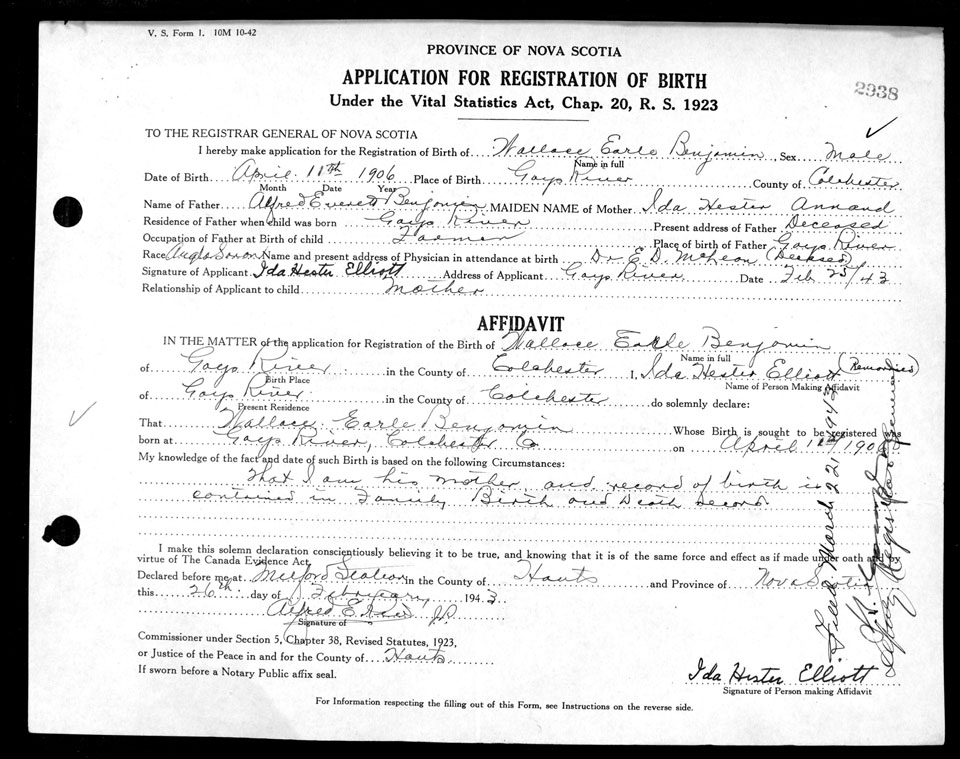 V. S. Form 1. 10M 10-42
PROVINCE OF NOVA SCOTIA
APPLICATION FOR REGISTRATION OF BIRTH
2938
Under the Vital Statistics Act, Chap. 20, R. S. 1923
TO THE REGISTRAR GENERAL OF NOVA SCOTIA
I hereby make application for the Registration of Birth of Wallace Earle Benjamin Sex Male
Name in full
Date of Birth April 11th 1906 Place of Birth Gays River County of Colchester
Month Date Year
Name of Father Alfred Everett Benjamin MAIDEN NAME of Mother Ida Hester Annand
Residence of Father when child was born Gays River Present address of Father Deceased
Occupation of Father at Birth of child Farmer Place of birth of Father Gays River
Race Anglo Saxon Name and present address of Physician in attendance at birth Dr. E. D. (Deceased)
Signature of Applicant Ida Hester Elliott Address of Applicant Gays River Date Feb 25/43
Relationship of Applicant to child Mother
AFFIDAVIT
IN THE MATTER of the application for Registration of the Birth of Wallace Earle Benjamin
Name in full
of Gays River in the County of Colchester I, Ida Hester Elliott (Remarried)
Birth Place Name of Person Making Affidavit
of Gays River in the County of Colchester do solemnly declare:
Present Residence
That Wallace Earle Benjamin Whose Birth is sought to be registered was
born at Gays River, Colchester Co on April 11th 1906
My knowledge of the fact and date of such Birth is based on the following Circumstances:
That I am his mother and record of birth is
contained in Family Birth and Death record.
I make this solemn declaration conscientiously believing it to be true, and knowing that it is of the same force and effect as if made under oath and by
virtue of The Canada Evidence Act.
Declared before me at Milford Station in the County of Hants and Province of Nova Scotia
this 26th day of February 1943
Alfred E. J.P.
Signature of
Commissioner under Section 5, Chapter 38, Revised Statutes, 1923,
or Justice of the Peace in and for the County of Hants
If sworn before a Notary Public affix seal.
Ida Hester Elliott
Signature of Person making Affidavit
For Information respecting the filling out of this Form, see Instructions on the reverse side.
Filed March 22 1943
Deputy Registrar General